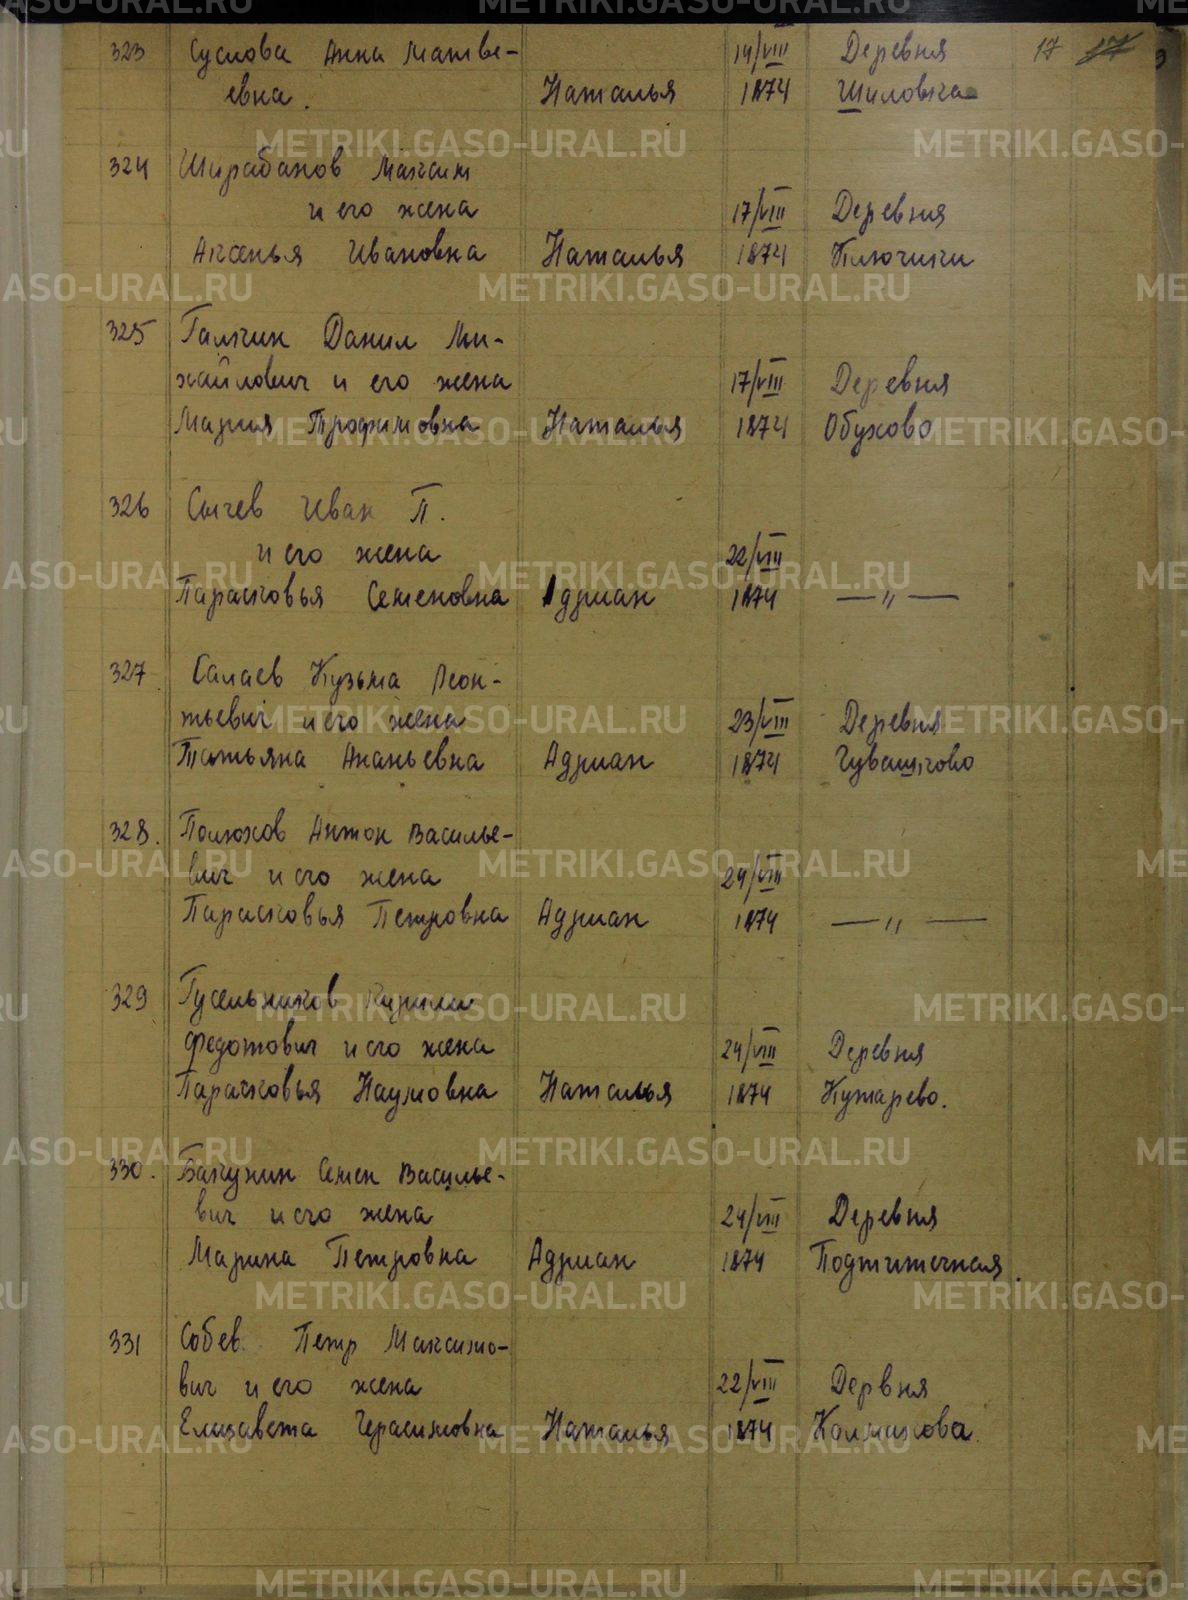 323 Суслова Анна Матве- 14/VIII Деревня 17 17
евна. Наталья 1874 Шиловка
324 Ширабанов Максим
и его жена 17/VIII Деревня
Аксенья Ивановна Наталья 1874 Ключики
325 Галкин Данил Ми-
хайлович и его жена 17/VIII Деревня
Мария Трофимовна Наталья 1874 Обухово
326 Сычев Иван П.
и его жена 22/VIII
Парасковья Семеновна Адриан 1874 — „ —
327 Салаев Кузьма Леон-
тьевич и его жена 23/VIII Деревня
Татьяна Ананьевна Адриан 1874 Чувашково
328. Полюхов Антон Василье-
вич и его жена 24/VIII
Парасковья Петровна Адриан 1874 — „ —
329 Гусельников Кирилл
Федотович и его жена 24/VIII Деревня
Парасковья Наумовна Наталья 1874 Кумарево.
330. Бакунин Семен Василье-
вич и его жена 24/VIII Деревня
Марина Петровна Адриан 1874
331 Собев Петр Максимо-
вич и его жена 22/VIII Дервня
Елизавета Герасимовна Наталья 1874 Колмакова.
METRIKI.GASO-URAL.RU